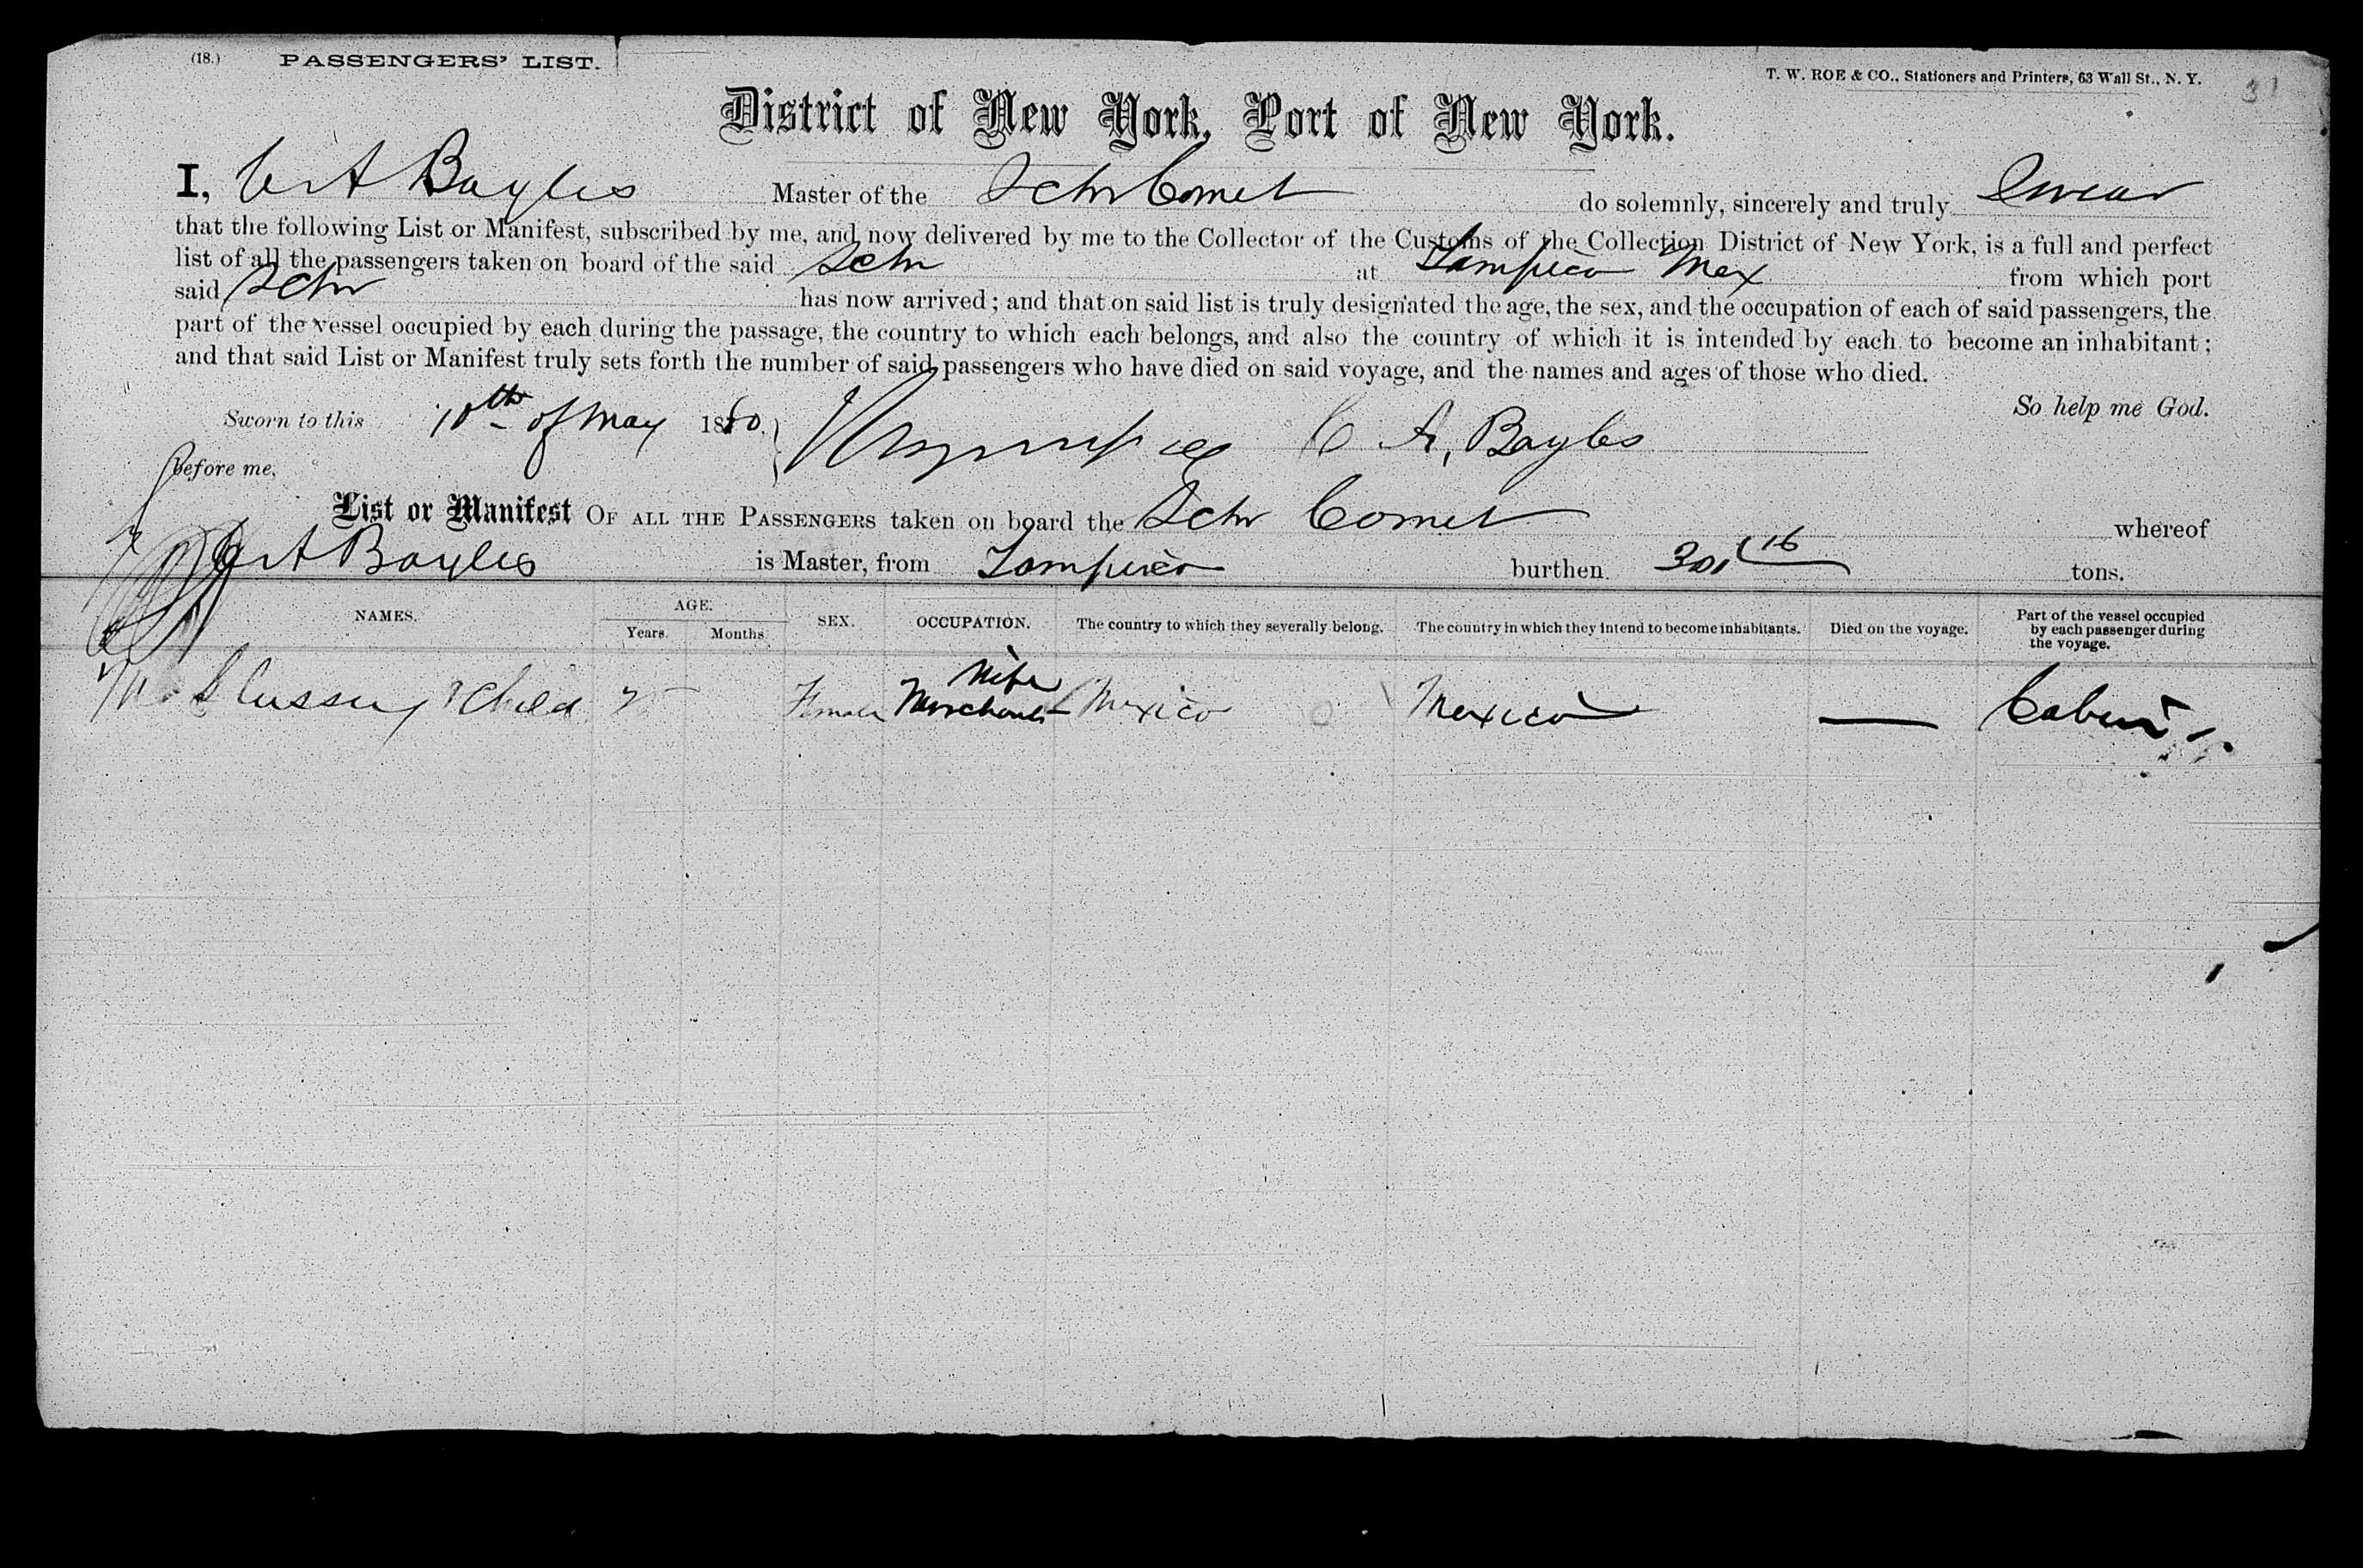 (18.) PASSENGERS' LIST.
T. W. ROE & CO., Stationers and Printers, 63 Wall St., N. Y.
31
District of New York, Port of New York.
I, C A Bayles Master of the Schr Comet do solemnly, sincerely and truly Swear
that the following List or Manifest, subscribed by me, and now delivered by me to the Collector of the Customs of the Collection District of New York, is a full and perfect
list of all the passengers taken on board of the said Schr at Tampico Mex from which port
said Schr has now arrived; and that on said list is truly designated the age, the sex, and the occupation of each of said passengers, the
part of the vessel occupied by each during the passage, the country to which each belongs, and also the country of which it is intended by each to become an inhabitant;
and that said List or Manifest truly sets forth the number of said passengers who have died on said voyage, and the names and ages of those who died.
So help me God.
Sworn to this 10th of May 1880. C A, Bayles
before me,
List or Manifest OF ALL THE PASSENGERS taken on board the Schr Comet whereof
C A Bayles is Master, from Tampico burthen 301 16 tons.
NAMES. AGE. Years. Months. SEX. OCCUPATION. The country to which they severally belong. The country in which they intend to become inhabitants. Died on the voyage. Part of the vessel occupied by each passenger during the voyage.
child Female Wife Merchant Mexico Mexico — Cabin